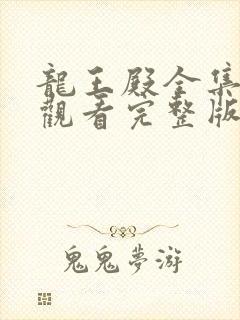 龍王殿全集
觀看完整版
鬼鬼夢游